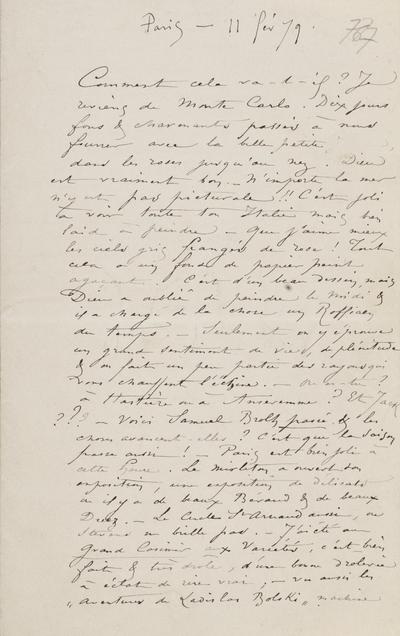 Paris — 11 fév 79.
Comment cela va-t-il ? Je
reviens de Monte Carlo. Dix jours
fous & charmants passés à nous
fourrer avec la belle petite
dans les roses jusqu'au nez. Dieu
est vraiment bon. — N'importe la mer
n'y est pas picturale !! C'est joli
à voir toute ton Italie mais bien
laid à peindre — Que j'aime mieux
les ciels gris frangés de rose ! Tout
cela a un fond de papier peint
agaçant. C'est d'un beau dessin, mais
Dieu a oublié de peindre le Midi &
il a chargé de la chose un Roffiaen
du temps. — Seulement on y éprouve
un grand sentiment de vie, de plénitude
& on fait un peu partie des rayons qui
vous chauffent l'échine. — Où es-tu ?
à Hastière ou à Anseremme ? Et Jack
??? — Voici Samuel Brohl passé & les
choses avancent-elles ? C'est que la saison
passe aussi ! — Paris est bien joli à
cette heure. Le Mirliton a ouvert son
exposition, une exposition de délicats
où il y a de beaux Béraud & de beaux
Duez. — Le Cercle St Arnaud aussi, où
Stevens ne brille pas. — J'ai été au
Grand Casimir aux Variétés, c'est bien
fait & très drôle, d'une bonne drôlerie
à éclat de rire vrai, — vu aussi les
"Aventures de Ladislas Bolski" machine